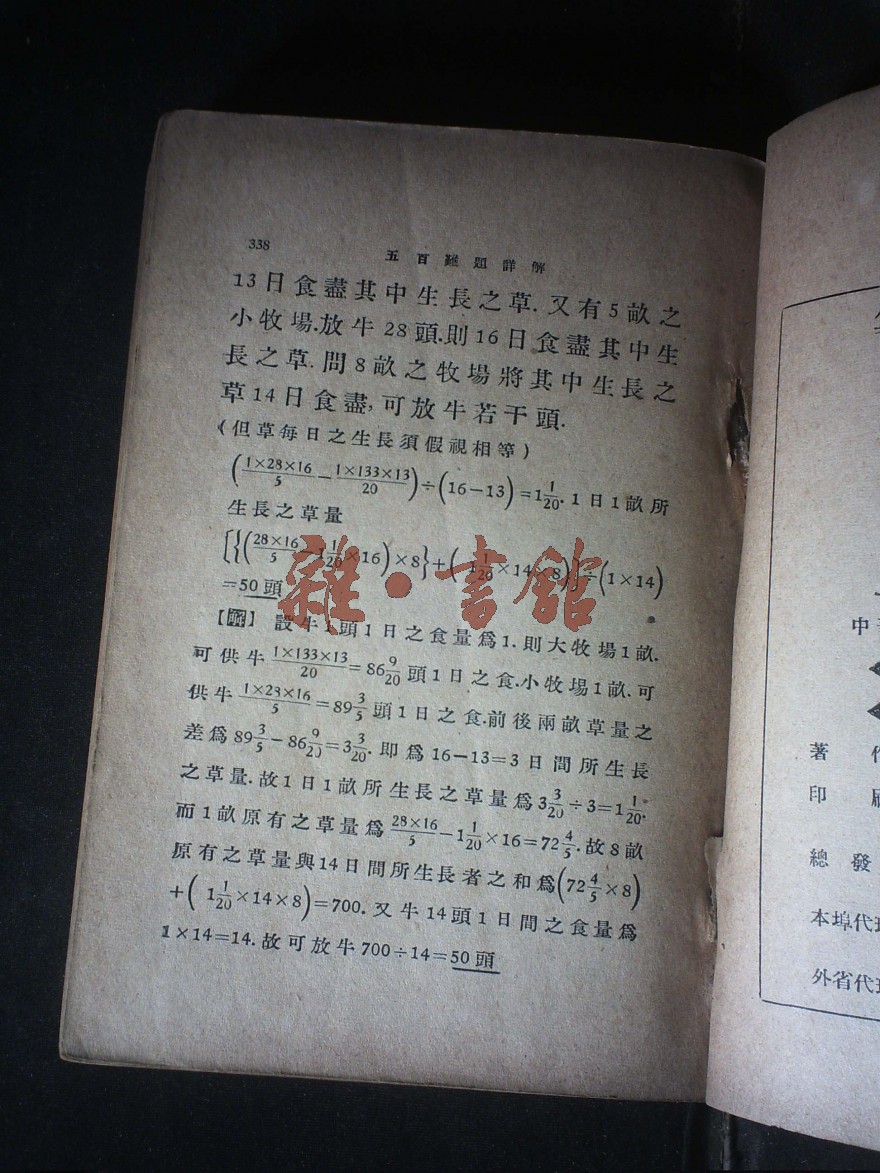 338
五百難題詳解
13日食盡其中生長之草.又有5畝之
小牧場.放牛28頭.則16日食盡其中生
長之草.問8畝之牧場將其中生長之
草14日食盡,可放牛若干頭.
(但草每日之生長須假視相等)
(1×28×16/5−1×133×13/20)÷(16−13)=1 1/20.1日1畝所
生長之草量
[{(28×16/5−1 1/20×16)×8}+(1 1/20×14×8)]÷(1×14)
=50頭
【解】設牛1頭1日之食量爲1.則大牧場1畝.
可供牛1×133×13/20=86 9/20頭1日之食.小牧場1畝.可
供牛1×28×16/5=89 3/5頭1日之食.前後兩畝草量之
差爲89 3/5−86 9/20=3 3/20.卽爲16−13=3日間所生長
之草量.故1日1畝所生長之草量爲3 3/20÷3=1 1/20.
而1畝原有之草量爲28×16/5−1 1/20×16=72 4/5.故8畝
原有之草量與14日間所生長者之和爲(72 4/5×8)
+(1 1/20×14×8)=700.又牛14頭1日間之食量爲
1×14=14.故可放牛700÷14=50頭
雜·書館
中
著
印
總發
本埠代
外省代